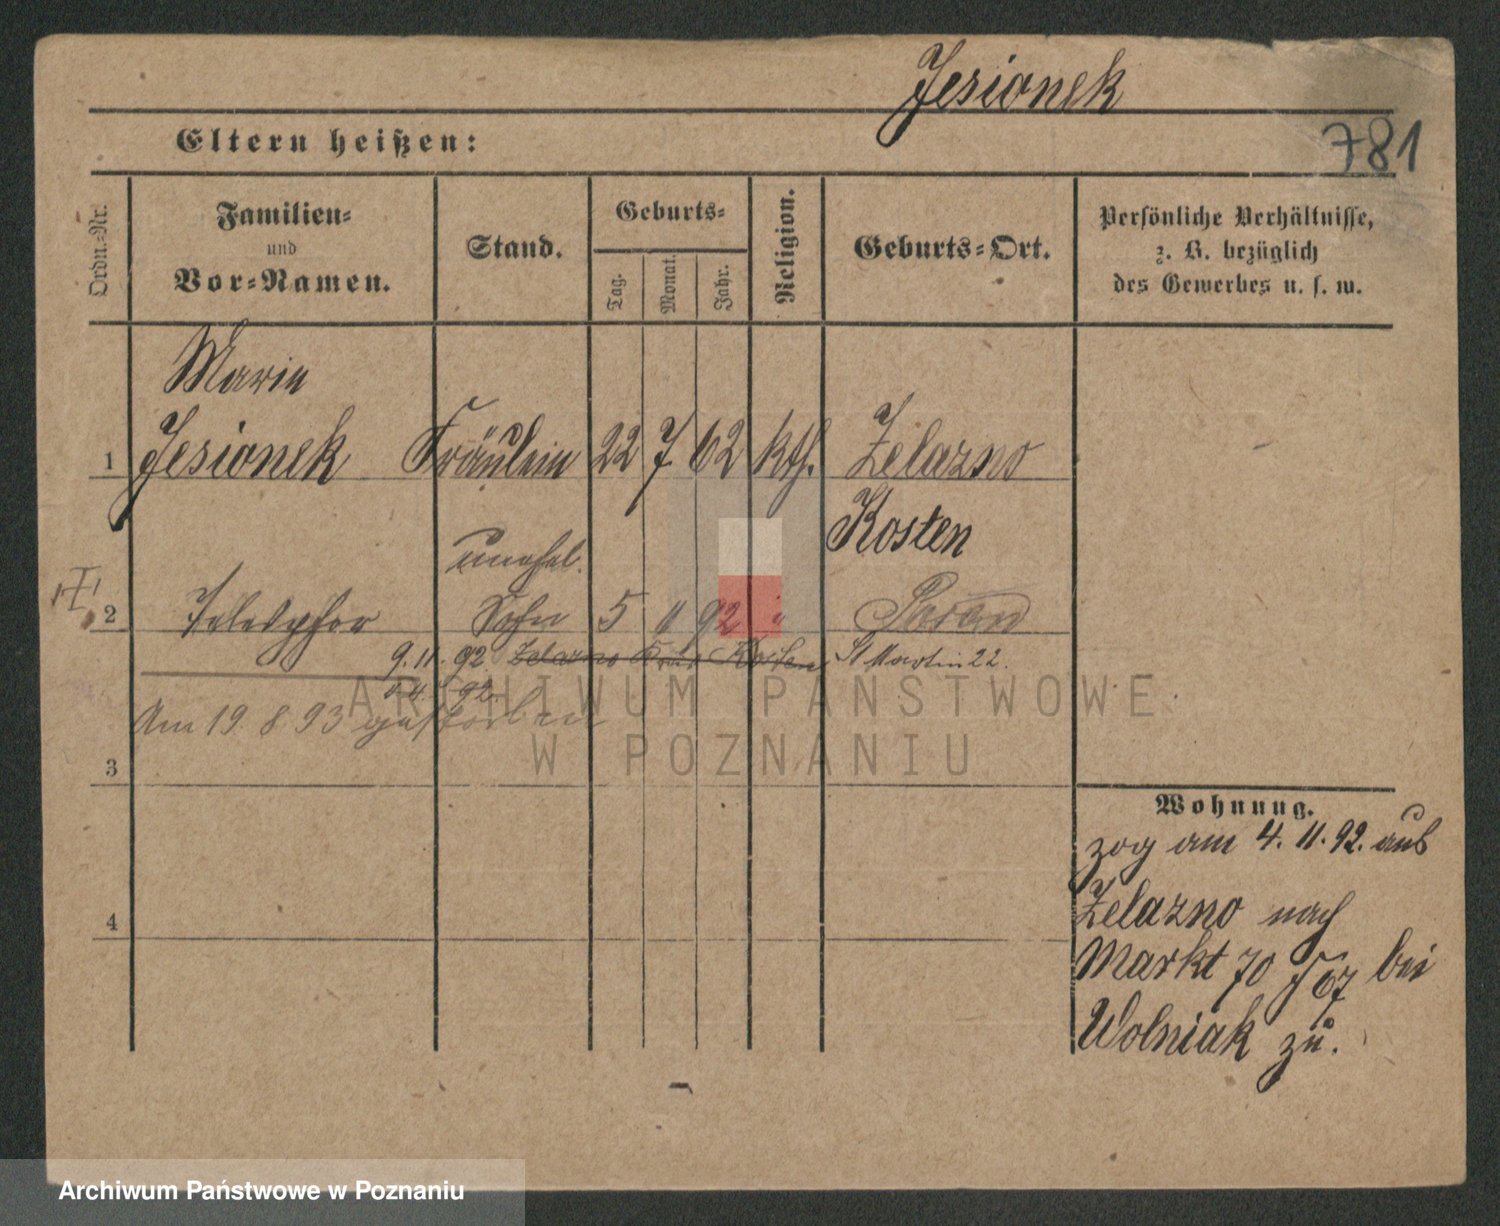 Jesionek
781
Eltern heißen:
Ordn.-Nr.
Familien-
und
Vor-Namen.
Stand.
Geburts-
Tag.
Monat.
Jahr.
Religion.
Geburts-Ort.
Persönliche Verhältnisse,
z. B. bezüglich
des Gewerbes u. s. w.
Marie
1 Jesionek Fräulein 22 7 62 kth. Zelazno
Kosten
unehel.
2 Telesphor Sohn 5 11 92 " Posen
9.11.92 Zelazno Kreis Kosten St Martin 22.
4. 92.
Am 19. 8 93 gestorben
3
4
Wohnung.
zog am 4. 11. 92. aus
Zelazno nach
Markt 70 bei
Wolniak zu.
ARCHIWUM PAŃSTWOWE
W POZNANIU
Archiwum Państwowe w Poznaniu